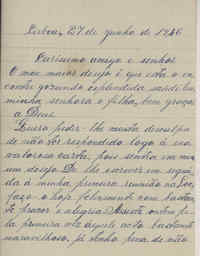 Lisboa, 27 de junho de 1946
Caríssimo amigo e senhor
O meu maior desejo é que esta o en-
contre gozando esplendida saúde sua
minha senhora e filha, bem graças
a Deus.
Quero pedir-lhe muita desculpa
de não ter respondido logo á sua
valorosa carta, pois tenho em mim
um desejo de lhe escrever em segui-
da á minha primeira reunião na
faço-o hoje felizmente com bastan-
te prazer e alegria. Assisti ontem pe-
la primeira vez aquele acto bastante
maravilhoso, já tenho pena de não